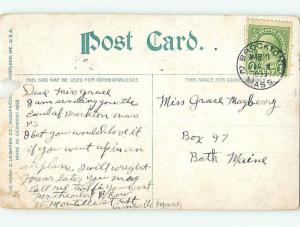 Post Card.
THIS SIDE MAY BE USED FOR CORRESPONDENCE
THIS SPACE FOR ADDRESS
THE HUGH C. LEIGHTON CO., MANUFACTURERS, PORTLAND, ME. U.S.A.
MADE IN GERMANY
BROCKTON
MASS.
Dear Miss Grace
I am sending you the
card of Brockton mass
PS
I bet you would love it
if you went up in an
air plane. I will wright
you later you may
call me
Montello
Montello Mass
Miss Grace Mayberry
Box 97
Bath Maine